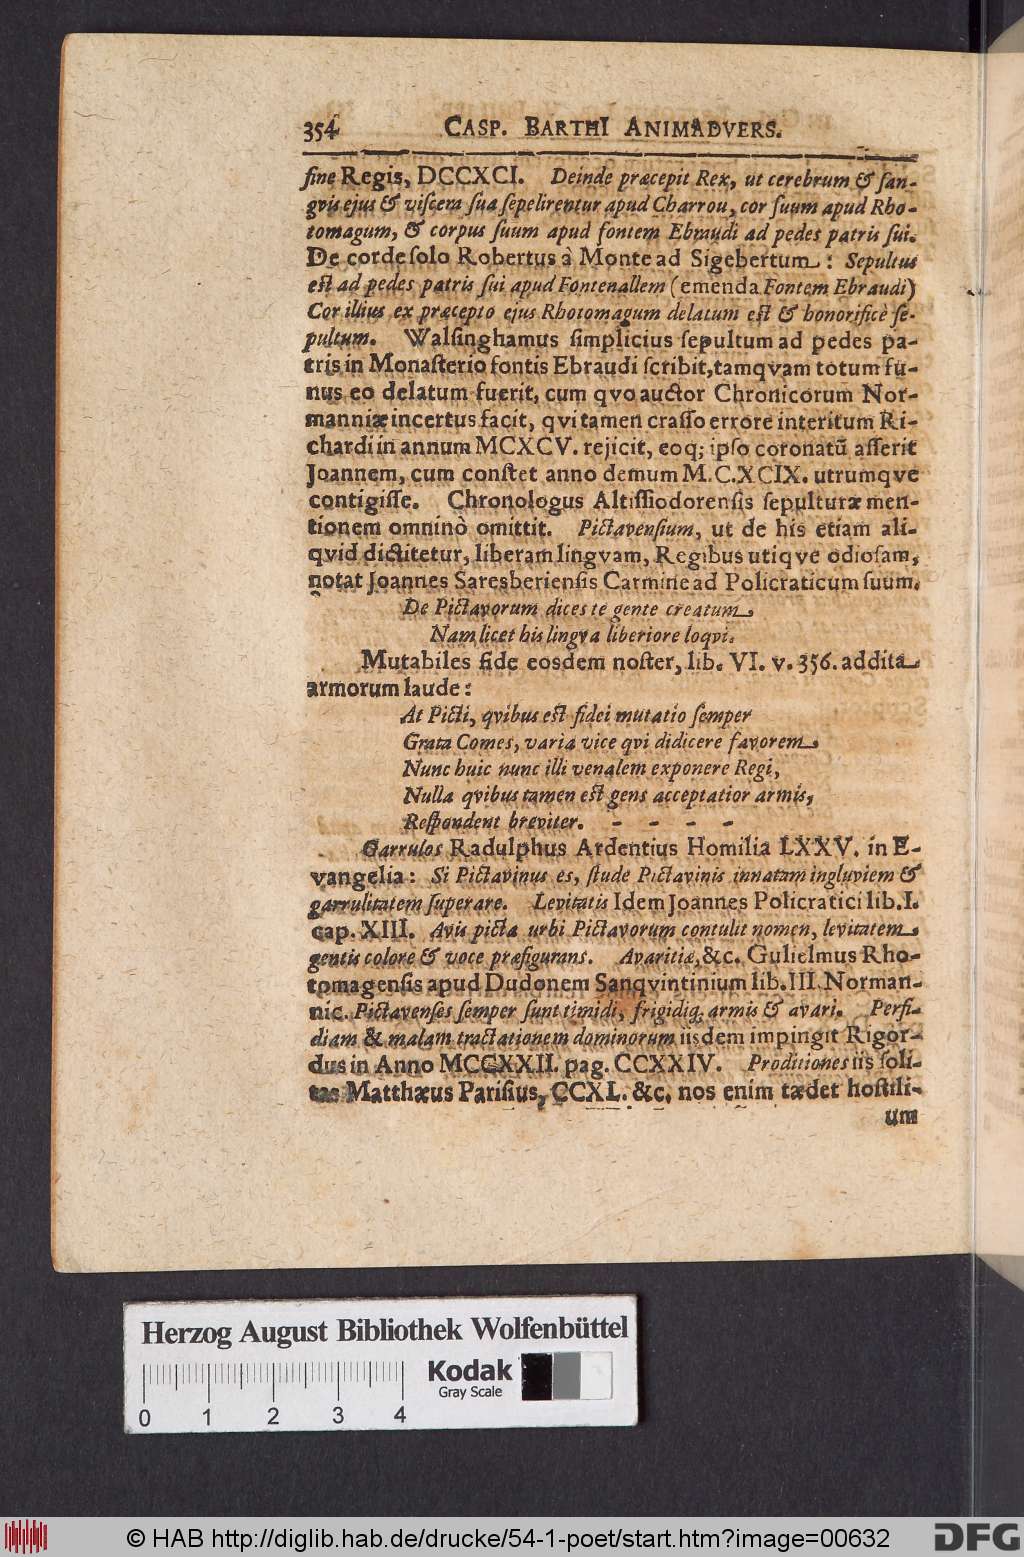 354 CASP. BARTHI ANIMADVERS.
ſine Regis, DCCXCI. Deinde præcepit Rex, ut cerebrum & ſan-
gvis ejus & viſcera ſua ſepelirentur apud Charrou, cor ſuum apud Rho-
tomagum, & corpus ſuum apud fontem Ebraudi ad pedes patris ſui.
De corde ſolo Robertus à Monte ad Sigebertum: Sepultus
eſt ad pedes patris ſui apud Fontenallem (emenda Fontem Ebraudi)
Cor illius ex præcepto ejus Rhotomagum delatum eſt & honorificè ſe-
pultum. Walſinghamus ſimplicius ſepultum ad pedes pa-
tris in Monaſterio fontis Ebraudi ſcribit, tamqvam totum fu-
nus eo delatum fuerit, cum qvo auctor Chronicorum Nor-
manniæ incertus facit, qvi tamen craſſo errore interitum Ri-
chardi in annum MCXCV. rejicit, eoq; ipſo coronatũ aſſerit
Joannem, cum conſtet anno demum M.C.XCIX. utrumqve
contigiſſe. Chronologus Altiſſiodorenſis ſepulturæ men-
tionem omninò omittit. Pictavenſium, ut de his etiam ali-
qvid dictitetur, liberam lingvam, Regibus utiqve odioſam,
notat Joannes Saresberienſis Carmine ad Policraticum ſuum.
De Pictavorum dices te gente creatum,
Nam licet his lingva liberiore loqvi.
Mutabiles fide eosdem noſter, lib. VI. v. 356. addita
armorum laude:
At Picti, qvibus eſt fidei mutatio ſemper
Grata Comes, varia vice qvi didicere favorem
Nunc huic nunc illi venalem exponere Regi,
Nulla qvibus tamen eſt gens acceptatior armis,
Reſpondent breviter. - - - -
Garrulos Radulphus Ardentius Homilia LXXV. in E-
vangelia: Si Pictavinus es, ſtude Pictavinis innatam ingluviem &
garrulitatem ſuperare. Levitatis Idem Joannes Policratici lib. I.
cap. XIII. Avis picta urbi Pictavorum contulit nomen, levitatem
gentis colore & voce præfigurans. Avaritiæ, &c. Gulielmus Rho-
tomagenſis apud Dudonem Sanqvintinium lib. III. Norman-
nic. Pictavenſes ſemper ſunt timidi, frigidiq; armis & avari. Perfi-
diam & malam tractationem dominorum iisdem impingit Rigor-
dus in Anno MCCXXII. pag. CCXXIV. Proditiones iis ſoli-
tas Matthæus Pariſius, CCXL. &c. nos enim tædet hoſtili-
um
Herzog August Bibliothek Wolfenbüttel
Kodak
Gray Scale
0 1 2 3 4
© HAB http://diglib.hab.de/drucke/54-1-poet/start.htm?image=00632
DFG